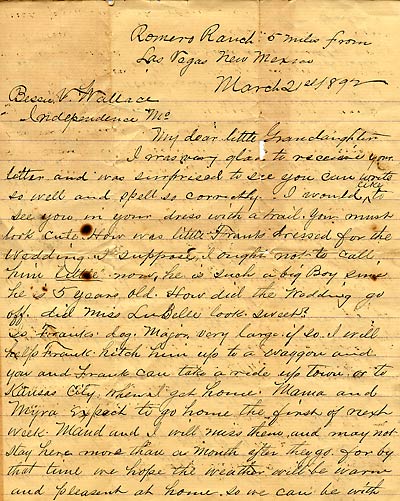 Romero Ranch 5 miles from
Las Vegas New Mexico
March 21st 1892
Bessie V. Wallace
Independence Mo
My dear little Grandaughter
I was very glad to receive your
letter and was surprised to see you can write
so well and spell so correctly. I would like to
see you in your dress with a trail. You must
look cute. How was little Frank dressed for the
Wedding. I suppose, I ought not to call
him little now, he is such a big Boy since
he is 5 years old. How did the Wedding go
off. did Miss LuDelle look sweet?
Is Franks dog. Major, very large, if so I will
help Frank hitch him up to a waggon and
you and Frank can take a ride up town or to
Kansas City, when I get home. Mama and
Myra Expect to go home the first of next
week. Maud and I will miss them, and may not
stay here more than a month after they go. for by
that time we hope the weather will be warm
and pleasant at home. so we can be with